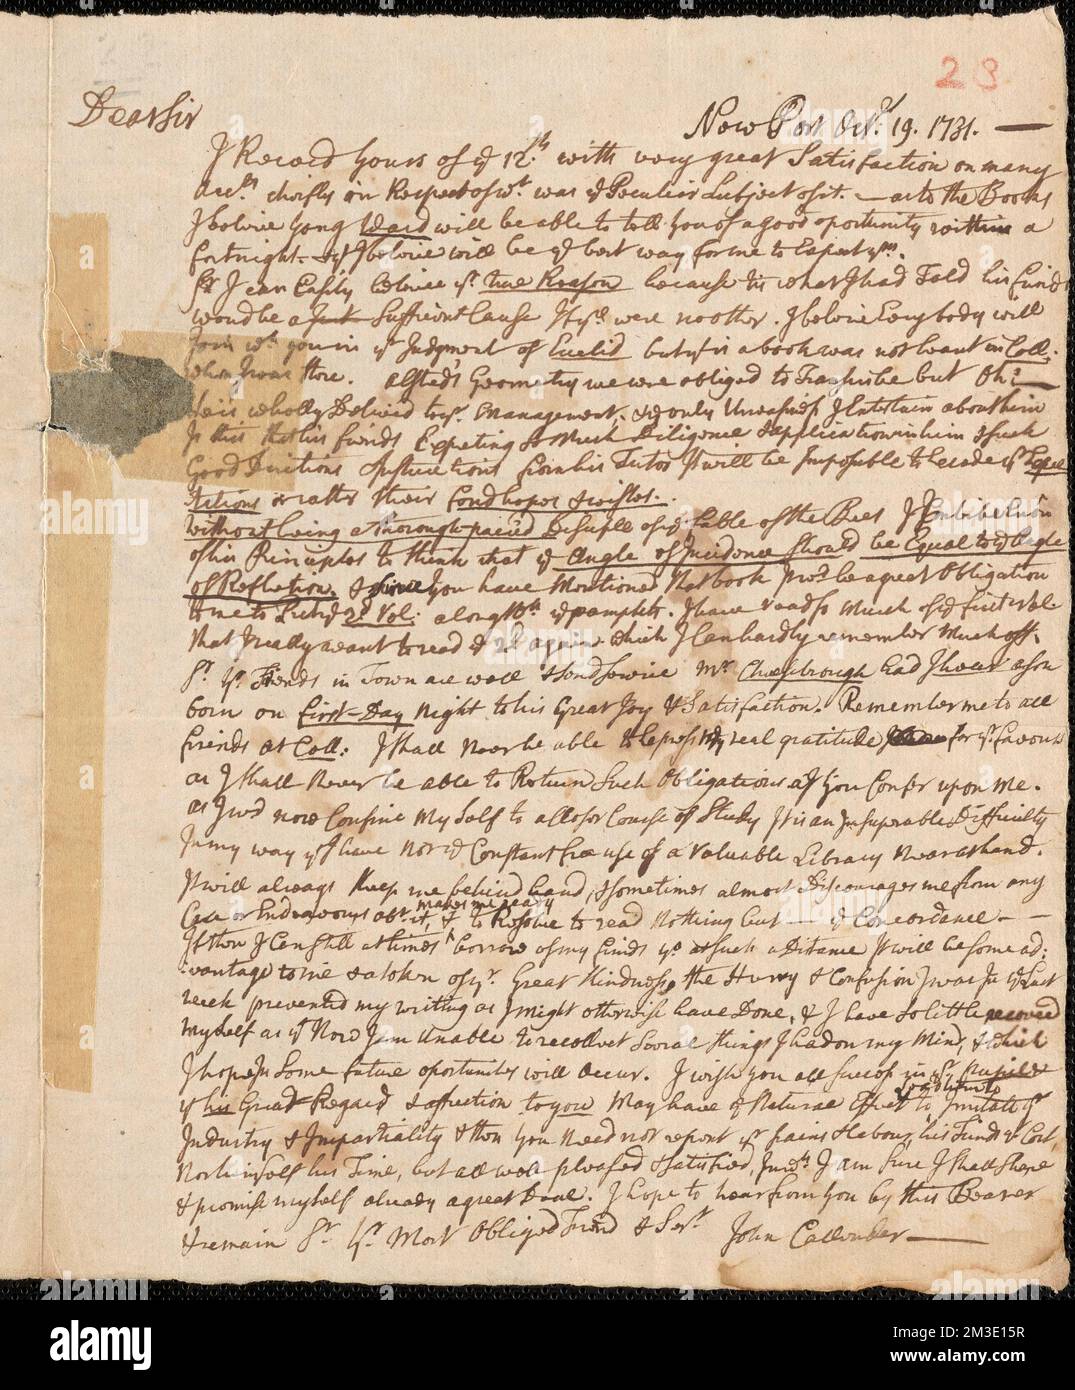 23
Dear Sir
New Port Octr. 19. 1731.
I Received Yours of ye 12th. with very great Satisfaction on many
Accts. chiefly in Respect of wt. was ye Peculiar Subject of it. — as to the Books
I believe Young Ward will be able to tell You of a good oportunity within a
fortnight. & I believe will be ye best way for me to Expect ym.
Sr. I can Easily believe yr. true Reason because tis what I had Told his Friends
would be a Sufficient Cause If yr. were no other. I believe Everybody will
Join wth. you in yr Judgment of Euclid but ys is a book was not Want in Coll:
when I was there. Alsted's Geometry we were obliged to Transcribe but Oh!
He is wholly Delivered to yr. Management, & ye only Uneasiness I Entertain about him
Is this that his Friends Expecting So Much Diligence & application in him & Such
Good Intentions & Instructions from his Tutor It will be Impossible to Exceed yr Expec
tations or rather their fond hopes & wishes.
Without being a thorough-paced Desciple of ye Fable of the Bees I Imbibe
of his Principles to think that ye Angle of Incidence Should be Equal to ye Angle
of Reflection. & Since You have Mentioned that book twd. be a great Obligation
to me to Lend ye 2d Vol: along wth ye pamplets. I have read so Much of ye first Vol.
that I really want to read ye 2d again which I Can hardly remember Much off.
Sr. Yr. Friends in Town are well & Send Service Mr. Cheesbrough had I hear a Son
born on first-Day Night to his Great Joy & Satisfaction. Remember me to all
friends at Coll: I Shall never be able to Express My real gratitude for yr. favours
as I Shall Never be able to Return Such Obligations as You Confer upon Me.
as I wd now Confine My Self to a closer Course of Study It is an Insuperable Difficulty
In my way yt I have Not ye Constant free use of a Valuable Library Near at hand.
It will always keep me behind hand, & Sometimes almost Discourages me from any
Care or Endeavours abt. it, & makes me ready to Resolve to read Nothing but — ye Concordance — —
If then I Can Still at times borrow of my friends yo at Such a Distance It will be Some ad:
vantage to me & a token of yr. Great Kindness, the Hurry & Confusion I was In ye Last
week prevented my writing as I might otherwise have Done, & I have So little recovered
myself as yt Now I am Unable to recollect Several things I had on my Mind, & which
I hope In Some future oportunities will occur. I wish you all Success in yr Pupil &
yt his Great Regard & affection to you May have ye Natural Effect to Imitate yr
Industry & Impartiality & then You Need not repent yr pains & Labour, his Friends ye Cost,
Nor himself his Time, but all well pleased & Satisfied, In wch. I am Sure I Shall Share
& promise myself already a great Deal. I hope to hear from You by this Bearer
& remain Sr. Yr. Most Obliged Friend & Sert. John Callender
alamy
Image ID: 2M3E15R
www.alamy.com